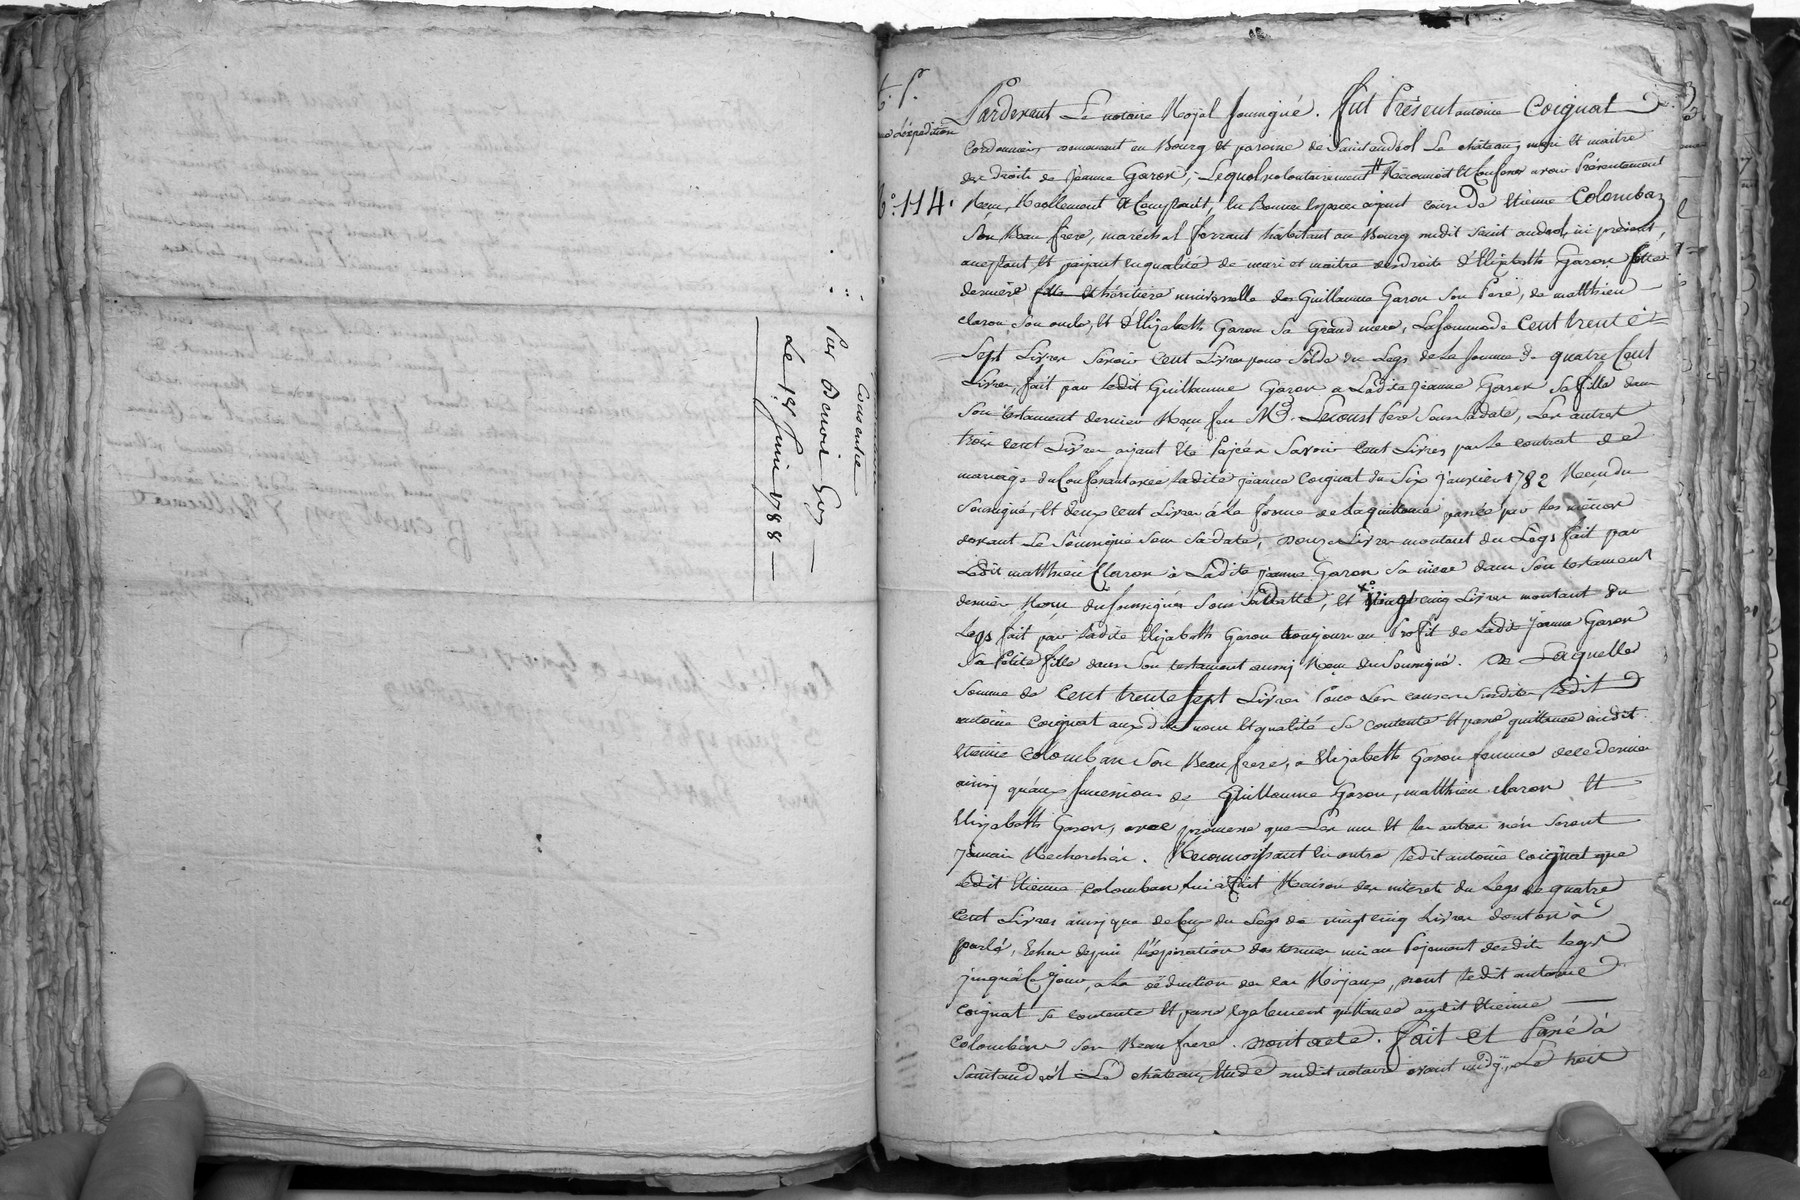 consentie
Par Benoit Goy
Le 1er Juin 1788
n.° 114.
Pardevant Le notaire Royal soussigné. fut Présent antoine Coignat
cordonnier demeurant en Bourg et paroisse de saint andeol Le château, mari et maitre
des droits de jeanne Garon, Lequel volontairement # Reconnoit et Confesse avoir Présentement
Reçu, Réellement et Comptant, en Bonnes Especes aÿant cours de Etienne Colomban
son Beau frere, maréchal ferrant habitant au Bourg dudit saint andeol, ici présent,
acceptant et païant en qualité de mari et maitre des droits d'Elizabeth Garon cette
dernière fille et héritière universelle de Guillaume Garon son Pere, de matthieu
claron son oncle, et d'Elizabeth Garon sa Grand mere, La somme de Cent trente
Sept Livres savoir Cent Livres pour solde du Legs de La somme de quatre Cent
Livres, fait par Ledit Guillaume Garon a Ladite jeanne Garon sa fille dans
son testament dernier Reçu feu Me. Lecourt Pere sous sa date, Les autres
trois cent Livres aÿant été Paiées Savoir Cent Livres par Le contrat de
mariage du Confessant avec Ladite jeanne Coignat du Six janvier 1782 Reçu du
soussigné, et deux cent Livres à la forme de la quittance passée par les mêmes
devant Le soussigné sous sa date, douze Livres montant du Legs fait par
Ledit matthieu Claron à Ladite jeanne Garon sa niece dans son testament
dernier Reçu du soussigné sous sa datte, et vingt cinq Livres montant du
Legs fait par Ladite Elizabeth Garon toujours au Profit de Ladite jeanne Garon
sa Petite fille dans son testament aussi Reçu du soussigné. De Laquelle
somme de Cent trente sept Livres Pour Les causes susdites Ledit
antoine Coignat auxdits nom et qualité se contente et passe quittance audit
Etienne Colomban son Beau frere, a Elizabeth Garon femme de ce dernier
ainsy qu'aux successions de Guillaume Garon, matthieu claron et
Elizabeth Garon, avec promesse que Les uns et les autres n'en seront
jamais Recherchés. Reconnoissant en outre Ledit antoine Coignat que
Ledit Etienne colomban lui a fait Raison des interets du Legs de quatre
Cent Livres ainsy que de Ceux du Legs de vingt cinq Livres dont on à
parlé, Echus depuis L'expiration des termes mis au Païement desdits legs
jusqu'à ce jour, a La déduction des cas Roïaux, dont Ledit antoine
coignat se contente et passe également quittance audit Etienne
Colomban son Beau frere. dont acte. fait et Passé à
Saint andéol Le château, Etude dudit notaire avant midÿ, Le huit